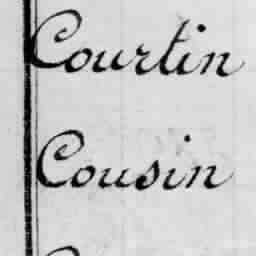 Courtin
Cousin